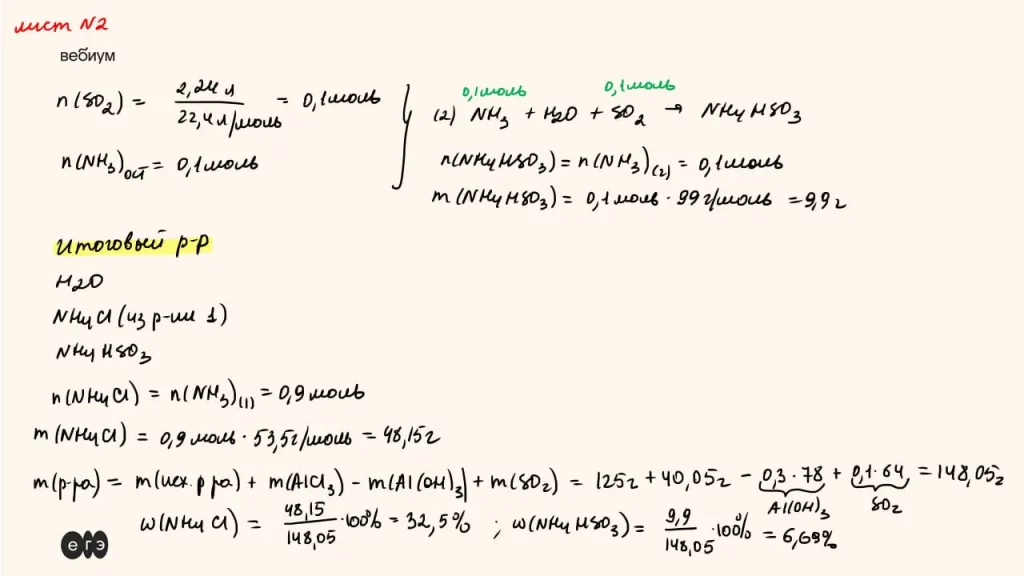 лист №2
вебиум
n(SO2) = 2,24 л / 22,4 л/моль = 0,1 моль
n(NH3)ост = 0,1 моль
0,1 моль 0,1 моль
(2) NH3 + H2O + SO2 → NH4HSO3
n(NH4HSO3) = n(NH3)(2) = 0,1 моль
m(NH4HSO3) = 0,1 моль · 99 г/моль = 9,9 г
Итоговый р-р
H2O
NH4Cl (из р-ии 1)
NH4HSO3
n(NH4Cl) = n(NH3)(1) = 0,9 моль
m(NH4Cl) = 0,9 моль · 53,5 г/моль = 48,15 г
m(р-ра) = m(исх. р ра) + m(AlCl3) - m(Al(OH)3) + m(SO2) = 125г + 40,05г - 0,3·78 + 0,1·64 = 148,05г
Al(OH)3 SO2
w(NH4Cl) = 48,15 / 148,05 · 100% = 32,5% ; w(NH4HSO3) = 9,9 / 148,05 · 100% = 6,69%
егэ